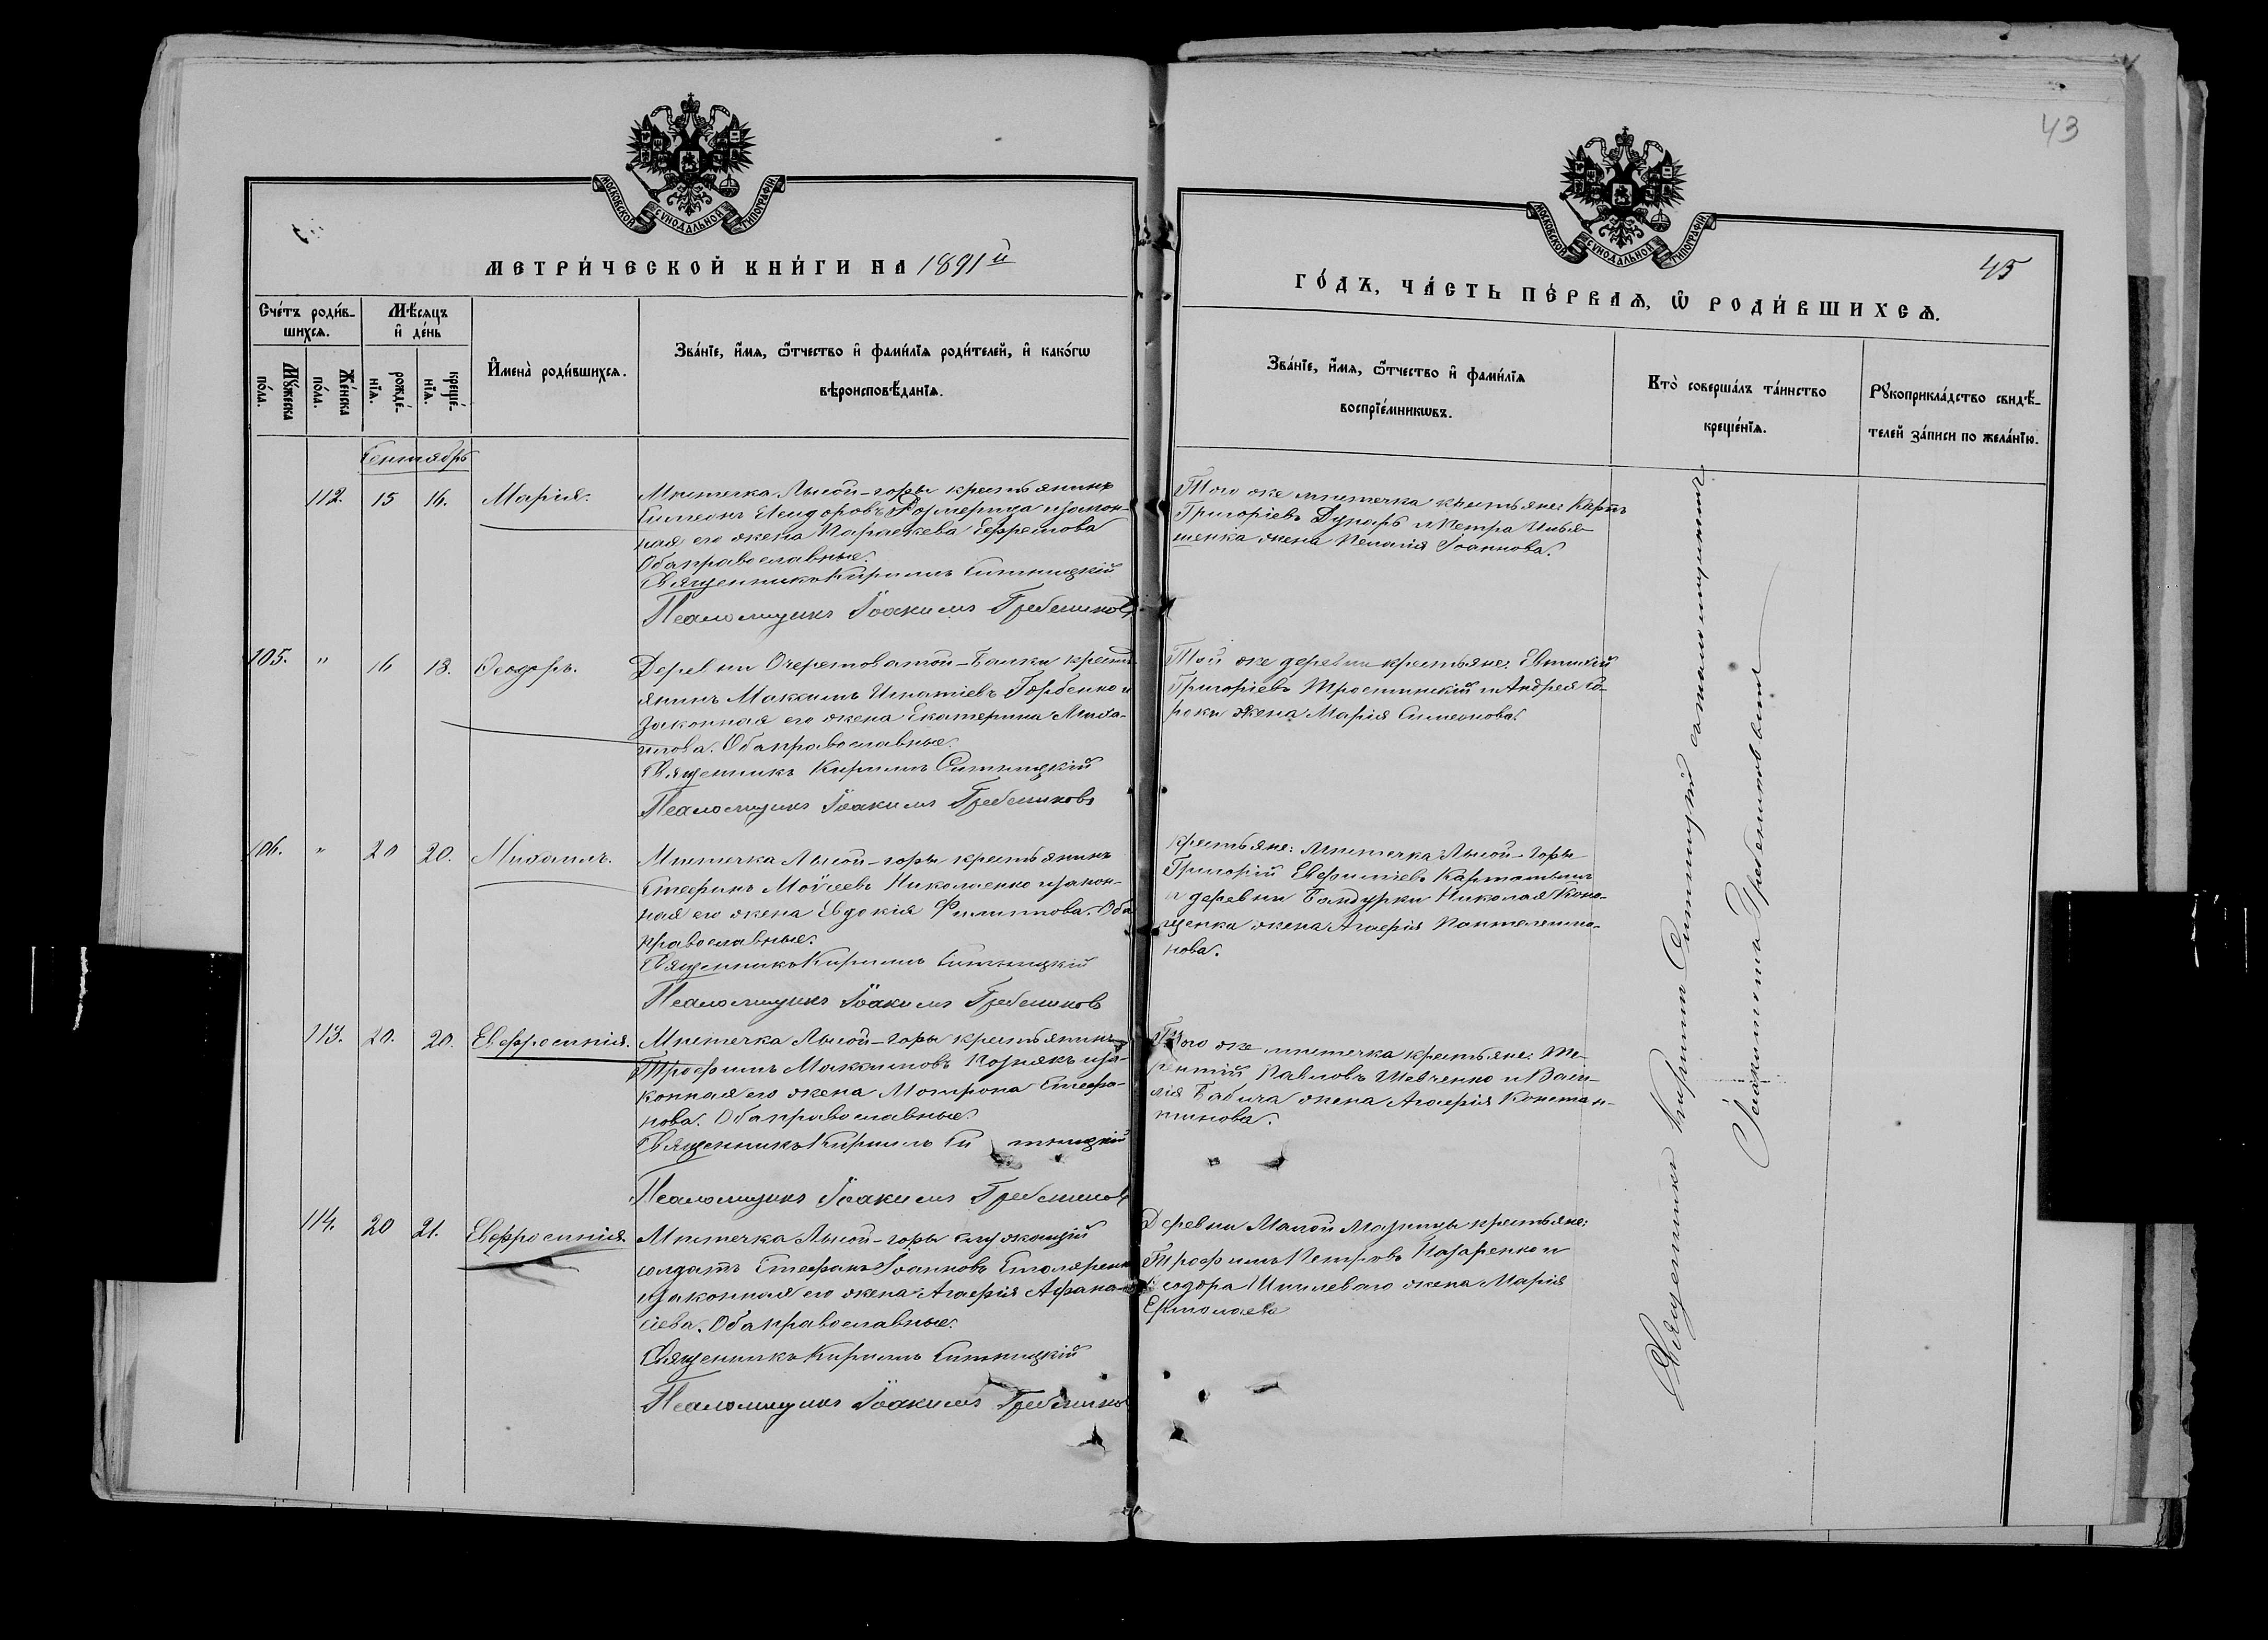 43
МОСКОВСКОЙ СУНОДАЛЬНОЙ ТИПОГРАФІИ
МЕТРИ́ЧЕСКОЙ КНИ́ГИ НА 1891й
Сче́тъ роди́в-
шихсѧ.
Мꙋ́жеска
по́ла.
Же́нска
по́ла.
Мѣ́сѧцъ
и҆ де́нь
рожде́-
нїѧ.
креще́-
нїѧ.
И҆мена̀ роди́вшихсѧ.
Зва́нїе, и҆́мѧ, ѻ҆́тчество и҆ фами́лїѧ роди́телей, и҆ како́гѡ
вѣроисповѣ́данїѧ.
Сентябрь
112. 15 16. Марія.
Мѣстечка Лысой-горы крестьянинъ
Симеонъ Исидоровъ и закон-
ная его жена Параскева Ефремова
Оба православные.
Священникъ Кириллъ Ситницкій
Псаломщикъ Іоакимъ Гребениковъ
105. " 16 18. Ѳеодоръ.
Деревни Очеретоватой-Балки кресть
янинъ Максимъ Игнатіевъ Горбенко и
законная его жена Екатерина Миха-
илова. Оба православные.
Священникъ Кириллъ Ситницкій
Псаломщикъ Іоакимъ Гребениковъ
106. " 20 20. Михаилъ.
Мѣстечка Лысой-горы крестьянинъ
Стефанъ Моѵсеевъ Николаенко и закон-
ная его жена Евдокія Филиппова. Оба
православные.
Священникъ Кириллъ Ситницкій
Псаломщикъ Іоакимъ Гребениковъ
113. 20. 20. Евфросинія.
Мѣстечка Лысой-горы крестьянинъ
Трофимъ Максимовъ Познякъ и за-
конная его жена Мотрона Стефа-
нова. Оба православные.
Священникъ Кириллъ Ситницкій
Псаломщикъ Іоакимъ Гребениковъ
114. 20 21. Евфросинія.
Мѣстечка Лысой-горы служащій
солдатъ Стефанъ Іоанновъ Столяренко
и законная его жена Агафія Афана-
сіева. Оба православные.
Священникъ Кириллъ Ситницкій
Псаломщикъ Іоакимъ Гребениковъ
МОСКОВСКОЙ СУНОДАЛЬНОЙ ТИПОГРАФІИ
45
ГО́ДЪ, ЧА́СТЬ ПЕ́РВАѦ, Ѡ҆ РОДИ́ВШИХСѦ.
Зва́нїе, и҆́мѧ, ѻ҆́тчество и҆ фами́лїѧ
воспрїе́мникѡвъ.
Кто̀ соверша́лъ та́инство
креще́нїѧ.
Рꙋкоприкла́дство свидѣ́-
телей за́писи по жела́нїю.
Того же мѣстечка крестьяне:
Григоріевъ и Петра Илья-
шенка жена Пелагія Іоаннова.
Той же деревни крестьяне: Евтихій
Григоріевъ Тростинскій и Андрея Со-
роки жена Марія Симеонова.
крестьяне: мѣстечка Лысой-горы
Григорій Евфиміевъ
и деревни Бандурки Николая Коно-
щенка жена Агафія Пантелеимо-
нова.
Того же мѣстечка крестьяне: Те-
рентій Павловъ Шевченко и Васи-
лія Бабича жена Агафія Констан-
тинова.
Деревни Малой Мазницы крестьяне:
Трофимъ Петровъ Назаренко и
Ѳеодора жена Марія
Ермолаева
Священникъ Кириллъ Ситницкій съ псаломщикомъ
Іоакимомъ Гребениковымъ